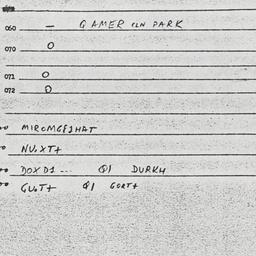 060 — GAMER CLN PARK
070 O
071 O
072 O
MIROMGESHAT
NUXT+
DOXD1 --- Q1 DURK4
GUOT+ Q1 GORT+